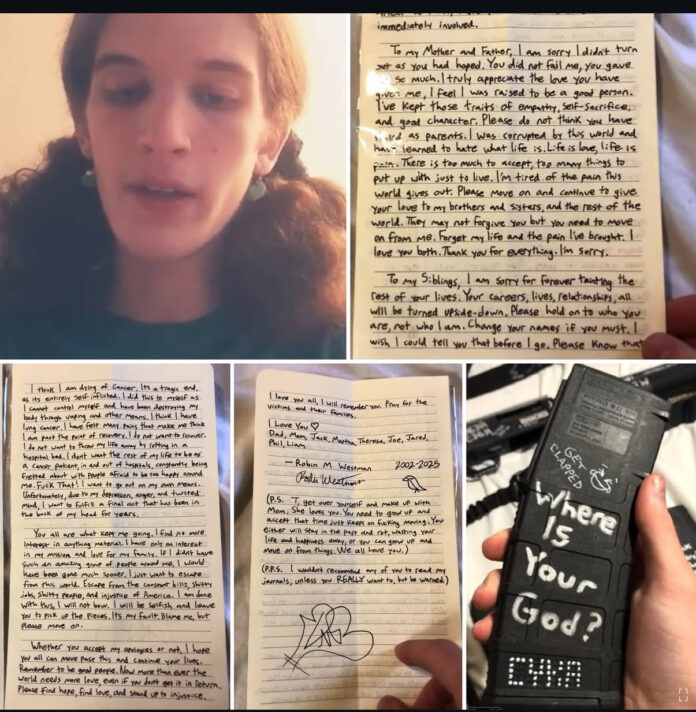 immediately involved.
To my Mother and Father, I am sorry I didn't turn
out as you had hoped. You did not fail me, you gave
so much. I truly appreciate the love you have
given me, I feel I was raised to be a good person.
I've kept those traits of empathy, self-sacrifice,
and good character. Please do not think you have
failed as parents. I was corrupted by this world and
have learned to hate what life is. Life is love, life is
pain. There is too much to accept, too many things to
put up with just to live. I'm tired of the pain this
world gives out. Please move on and continue to give
your love to my brothers and sisters, and the rest of the
world. They may not forgive you but you need to move
on from me. Forget my life and the pain I've brought. I
love you both. Thank you for everything. I'm sorry.
To my Siblings, I am sorry for forever tainting the
rest of your lives. Your careers, lives, relationships, all
will be turned upside-down. Please hold on to who you
are, not who I am. Change your names if you must. I
wish I could tell you that before I go. Please know that
I think I am dying of cancer. It's a tragic end,
as its entirely self inflicted. I did this to myself as
I cannot control myself and have been destroying my
body through vaping and other means. I think I have
lung cancer. I have felt many pains that make me think
I am past the point of recovery. I do not want to recover.
I do not want to throw my life away by rotting in a
hospital bed. I don't want the rest of my life to be as
a cancer patient, in and out of hospitals, constantly being
fretted about with people afraid to be too happy around
me. Fuck That! I want to go out on my own means.
Unfortunately, due to my depression, anger, and twisted
mind, I want to fulfill a final act that has been in
the back of my head for years.
You all are what kept me going. I find no more
interest in anything material. I have only an interest
in my mission and love for my family. If I didn't have
such an amazing group of people around me, I would
have been gone much sooner. I just want to escape
from this world. Escape from the constant bills, shitty
jobs, shitty people, and injustice of America. I am done
with this, I will not bow. I will be selfish and leave
you to pick up the pieces. Its my fault, blame me, but
please move on.
Whether you accept my apologies or not, I hope
you all can move past this and continue your lives.
Remember to be good people. Now more than ever the
world needs more love, even if you don't get it in return.
Please find hope, find love, and stand up to injustice.
I love you all, I will remember you. Pray for the
victims and their families.
I Love You ♡
Dad, Mom, Jack, Martha, Theresa, Joe, Jared,
Phil, Liam
— Robin M. Westman 2002-2025
Robin Westman
(P.S. T, get over yourself and make up with
Mom. She loves you. You need to grow up and
accept that time just keeps on fucking moving. You
either will stay in the past and rot, wasting your
life and happiness away, or you can grow up and
move on from things. We all love you.)
(P.P.S. I wouldn't recommend any of you to read my
journals, unless you REALLY want to, but be warned.)
GET
CLAPPED
Where
Is
Your
God?